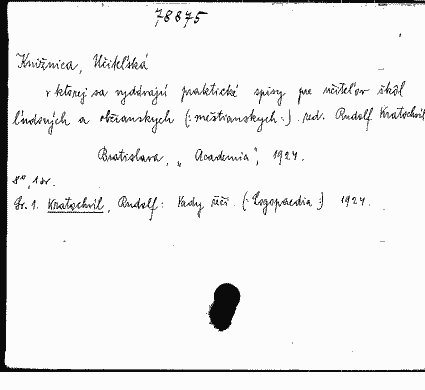 78875
Knižnica, Učiteľská
v ktorej sa vydávajú praktické spisy pre učiteľov škôl
ľudových a občianskych (: meštianskych :) red. Rudolf Kratochvíl
Bratislava, „Academia", 1924.
8°, 1 sv.
Sv. 1. Kratochvíl, Rudolf: Vady reči (: Logopaedia :) 1924.